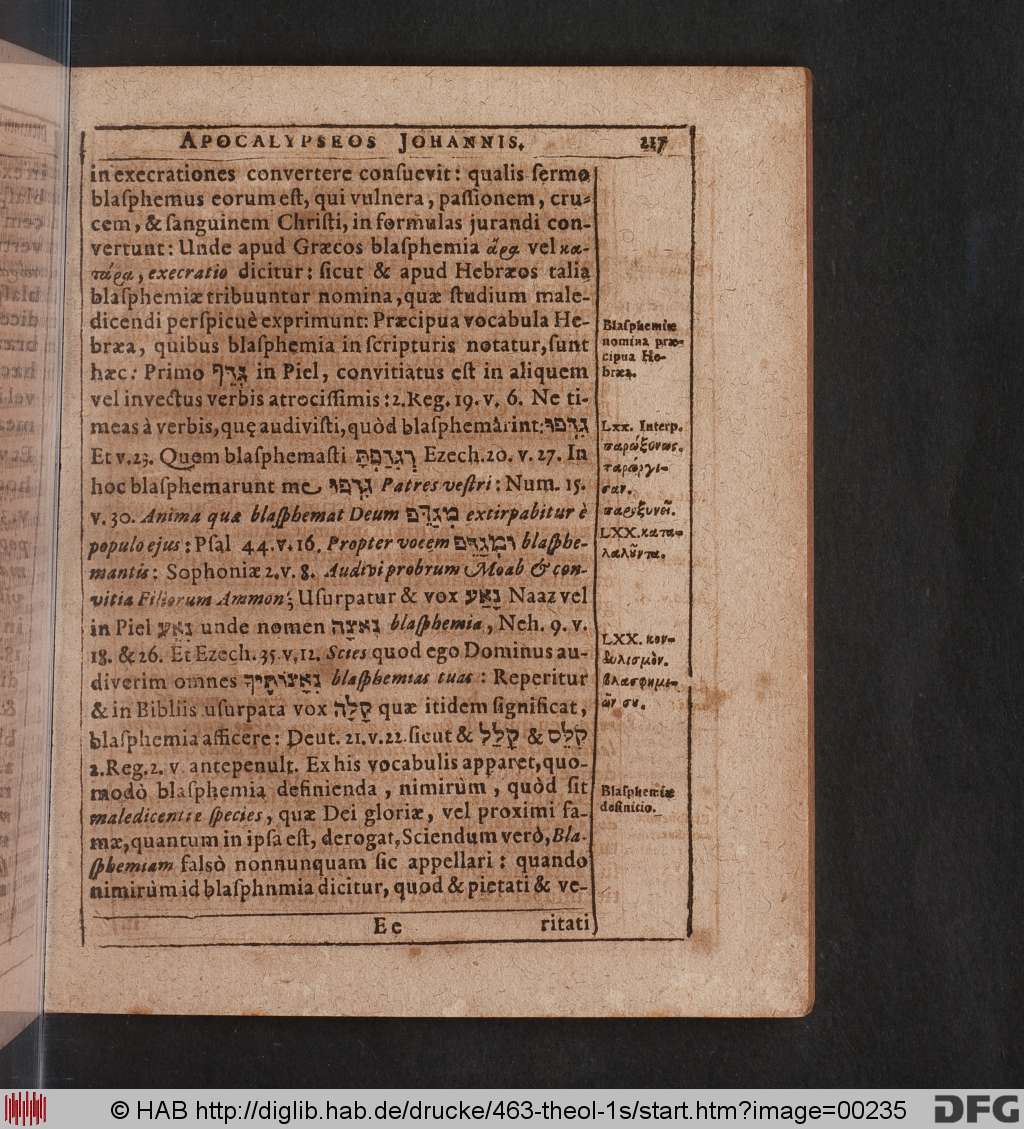 APOCALYPSEOS JOHANNIS. 217
in execrationes convertere conſuevit: qualis ſermo
blaſphemus eorum eſt, qui vulnera, paſſionem, cru-
cem, & ſanguinem Chriſti, in formulas jurandi con-
vertunt: Unde apud Græcos blaſphemia ἄρα vel κα-
τάρα, execratio dicitur: ſicut & apud Hebræos talia
blaſphemiæ tribuuntur nomina, quæ ſtudium male-
dicendi perſpicuè exprimunt: Præcipua vocabula He-
bræa, quibus blaſphemia in ſcripturis notatur, ſunt
hæc: Primo גִּדֵּף in Piel, convitiatus eſt in aliquem
vel invectus verbis atrociſſimis: 2. Reg. 19. v. 6. Ne ti-
meas à verbis, quę audiviſti, quòd blaſphemârint: גִּדְּפוּ
Et v. 23. Quem blaſphemaſti וְגִדַּפְתָּ Ezech. 20. v. 27. In
hoc blaſphemarunt me גִּדְּפוּ Patres veſtri: Num. 15.
v. 30. Anima quæ blaſphemat Deum מְגַדֵּף extirpabitur è
populo ejus: Pſal 44. v. 16. Propter vocem וּמְגַדֵּף blaſphe-
mantis: Sophoniæ 2. v. 8. Audivi probrum Moab & con-
vitia Filiorum Ammon; Uſurpatur & vox נָאַץ Naaz vel
in Piel נִאֵץ unde nomen נֶאָצָה blaſphemia, Neh. 9. v.
18. & 26. Et Ezech. 35. v. 12. Scies quod ego Dominus au-
diverim omnes נָאָצוֹתֶיךָ blaſphemias tuas: Reperitur
& in Bibliis uſurpata vox קָלָה quæ itidem ſignificat,
blaſphemia afficere: Deut. 21. v. 22. ſicut & קִלֵּל & קִלֵּס
2. Reg. 2. v. antepenult. Ex his vocabulis apparet, quo-
modò blaſphemia definienda, nimirùm, quòd ſit
maledicentiæ ſpecies, quæ Dei gloriæ, vel proximi fa-
mæ, quantum in ipſa eſt, derogat, Sciendum verò, Bla-
ſphemiam falsò nonnunquam ſic appellari: quando
nimirùm id blaſphnmia dicitur, quod & pietati & ve-
Ee ritati
Blaſphemiæ
nomina præ-
cipua He-
bræa.
Lxx. Interp.
παρώξυνας.
παρώργι-
σαν.
παροξυνεῖ.
LXX. κατα-
λαλοῦντα.
LXX. κον-
δυλισμὸν.
βλασφημι-
ῶν σου.
Blaſphemiæ
definicio.
© HAB http://diglib.hab.de/drucke/463-theol-1s/start.htm?image=00235 DFG